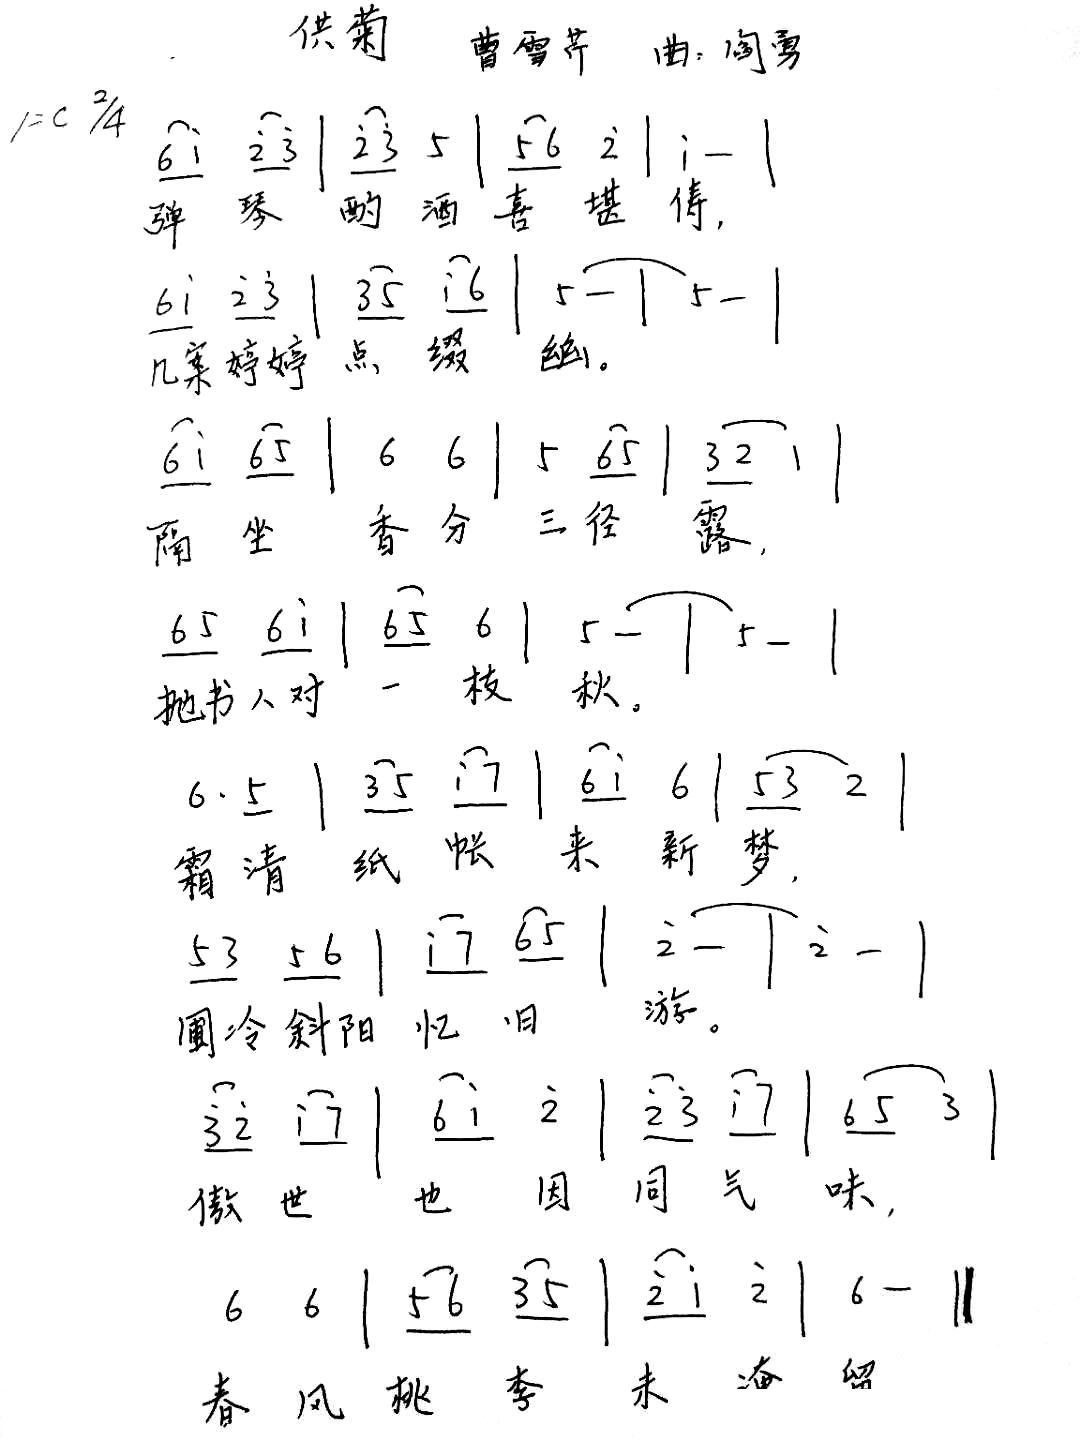 供菊 曹雪芹 曲:阎勇
1=C 2/4
6i 2̇3̇ | 2̇3̇ 5 | 56 2̇ | i – |
弹琴酌酒喜堪俦,
6i 2̇3̇ | 35 i6 | 5 – | 5 – |
几案婷婷点缀幽。
6i 65 | 6 6 | 5 65 | 32 1 |
隔坐香分三径露,
65 6i | 65 6 | 5 – | 5 – |
抛书人对一枝秋。
6· 5 | 35 i7 | 6i 6 | 53 2 |
霜清纸帐来新梦,
53 56 | i7 65 | 2̇ – | 2̇ – |
圃冷斜阳忆旧游。
3̇2̇ i7 | 6i 2̇ | 2̇3̇ i7 | 65 3 |
傲世也因同气味,
6 6 | 56 35 | 2̇i 2̇ | 6 – ‖
春风桃李未淹留